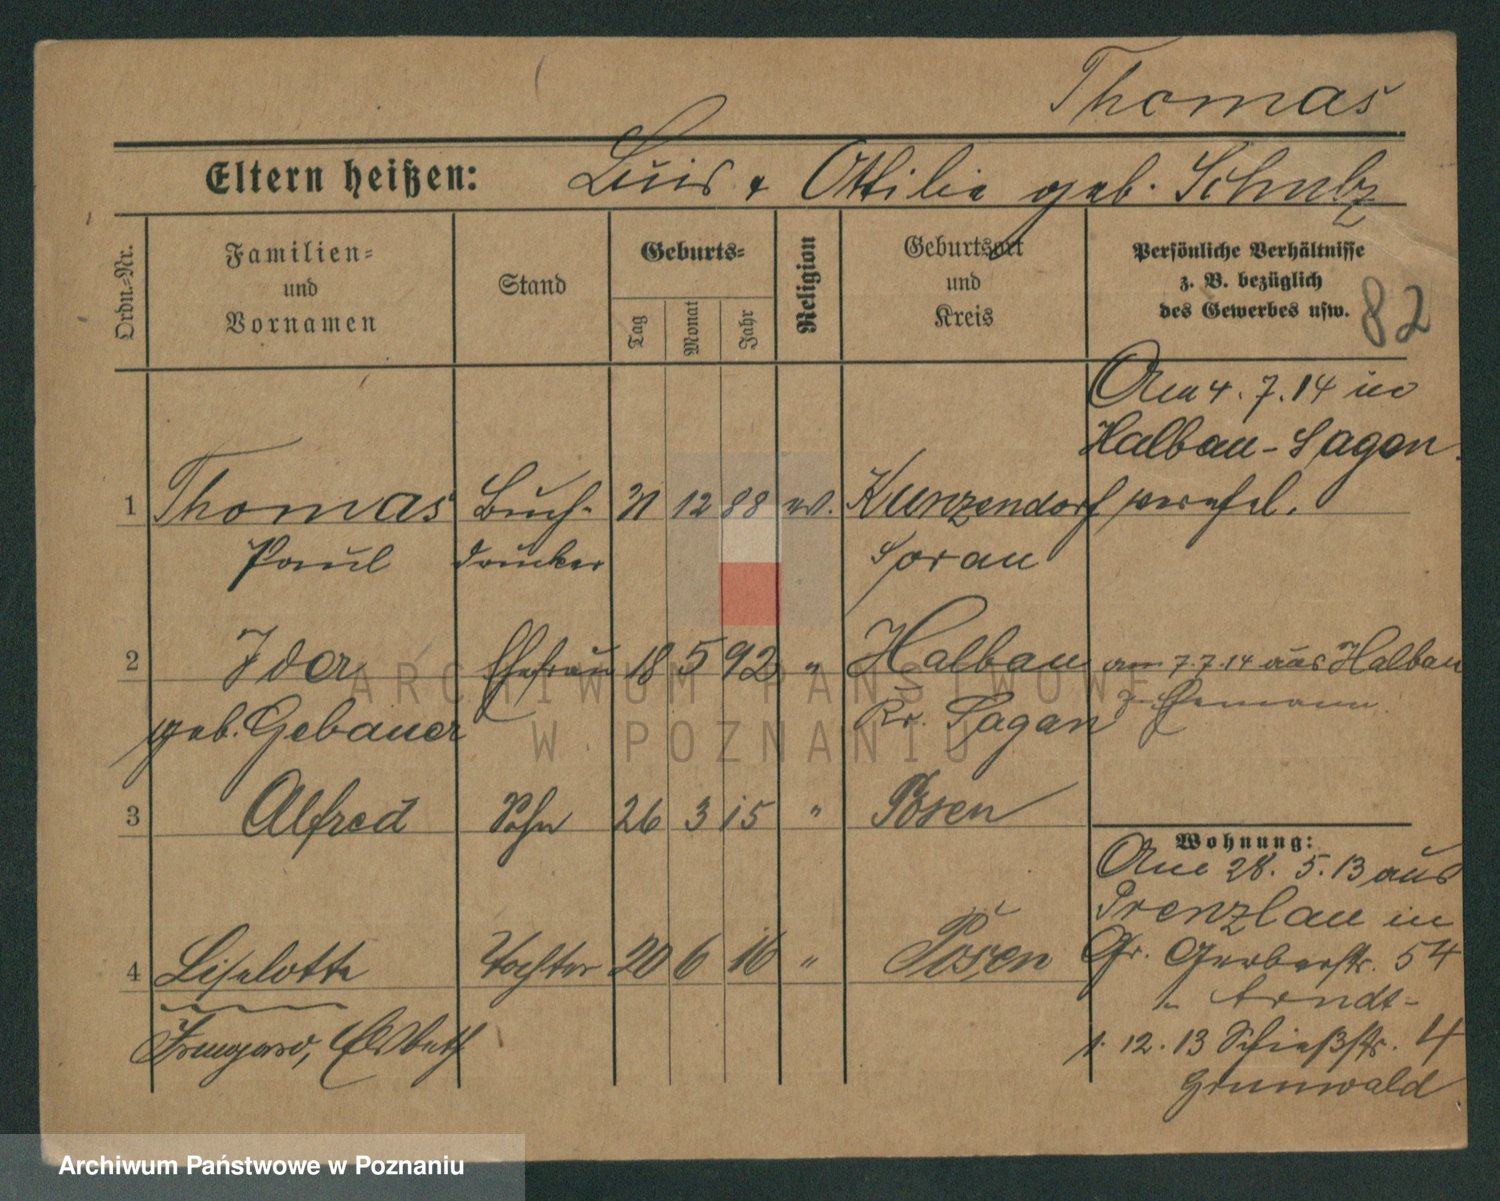 Thomas
Eltern heißen: Luis & Ottilie geb. Schulz
Ordn.-Nr.
Familien-
und
Vornamen
Stand
Geburts-
Tag
Monat
Jahr
Religion
Geburtsort
und
Kreis
Persönliche Verhältnisse
z. B. bezüglich
des Gewerbes usw.
82
Am 4. 7. 14 in
Halbau - Sagan
1 Thomas Buch- 31 12 88 ev. Kunzendorf
Paul drucker Sorau
2 Ida Ehefrau 18 5 92 " Halbau am 7.7.14 aus Halbau
geb. Gebauer Kr. Sagan z. Ehemann
3 Alfred Sohn 26 3 15 " Posen
Wohnung:
Am 28. 5. 13 aus
Prenzlau in
4 Liselotte Tochter 20 6 16 " Posen Gr. Gerberstr. 54
b. Arndt-
Irmgard, Elsbeth 1. 12. 13 Schießstr. 4
Grunwald
ARCHIWUM PAŃSTWOWE
W POZNANIU
Archiwum Państwowe w Poznaniu